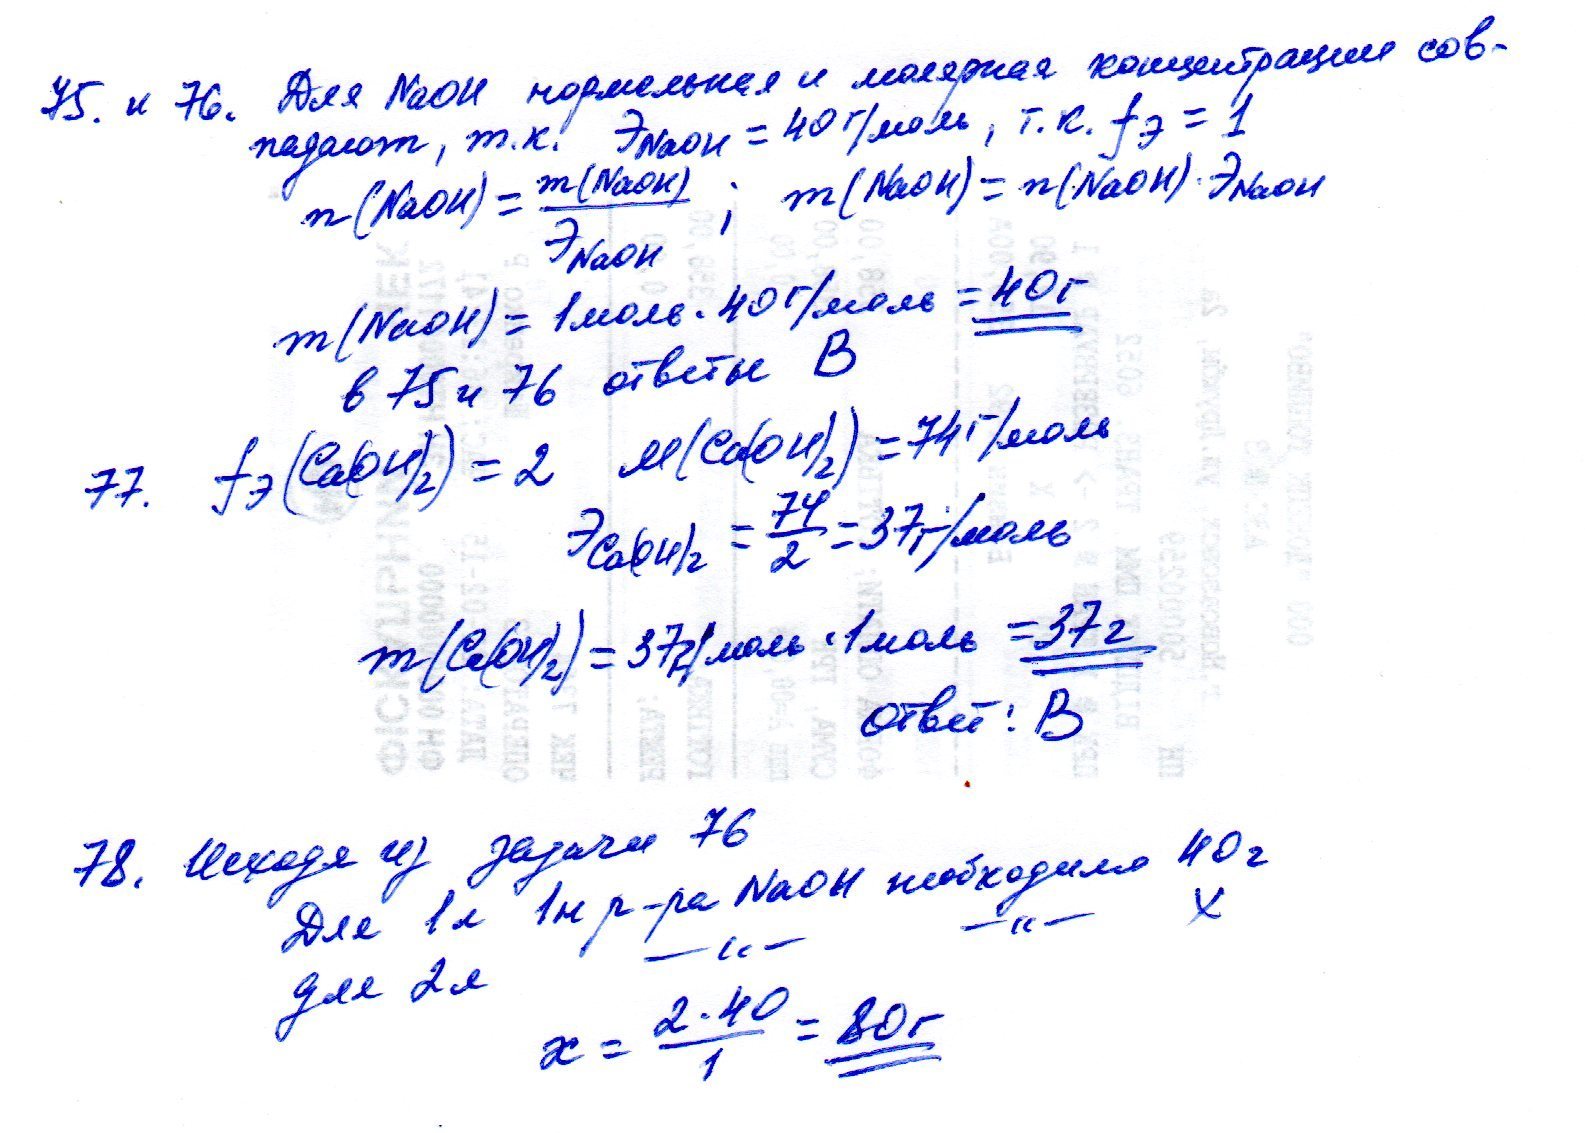 75. и 76. Для NaOH нормальная и молярная концентрации сов-
падают, т.к. Э NaOH = 40 г/моль, т.к. fэ = 1
n(NaOH) = m(NaOH) / Э NaOH ; m(NaOH) = n(NaOH) · Э NaOH
m(NaOH) = 1 моль · 40 г/моль = 40 г
в 75 и 76 ответы В
77. fэ(Ca(OH)2) = 2 M(Ca(OH)2) = 74 г/моль
Э Ca(OH)2 = 74/2 = 37 г/моль
m(Ca(OH)2) = 37 г/моль · 1 моль = 37 г
ответ: В
78. Исходя из задачи 76
Для 1 л 1н р-ра NaOH необходимо 40 г
для 2 л —"— —"— X
x = 2·40 / 1 = 80 г